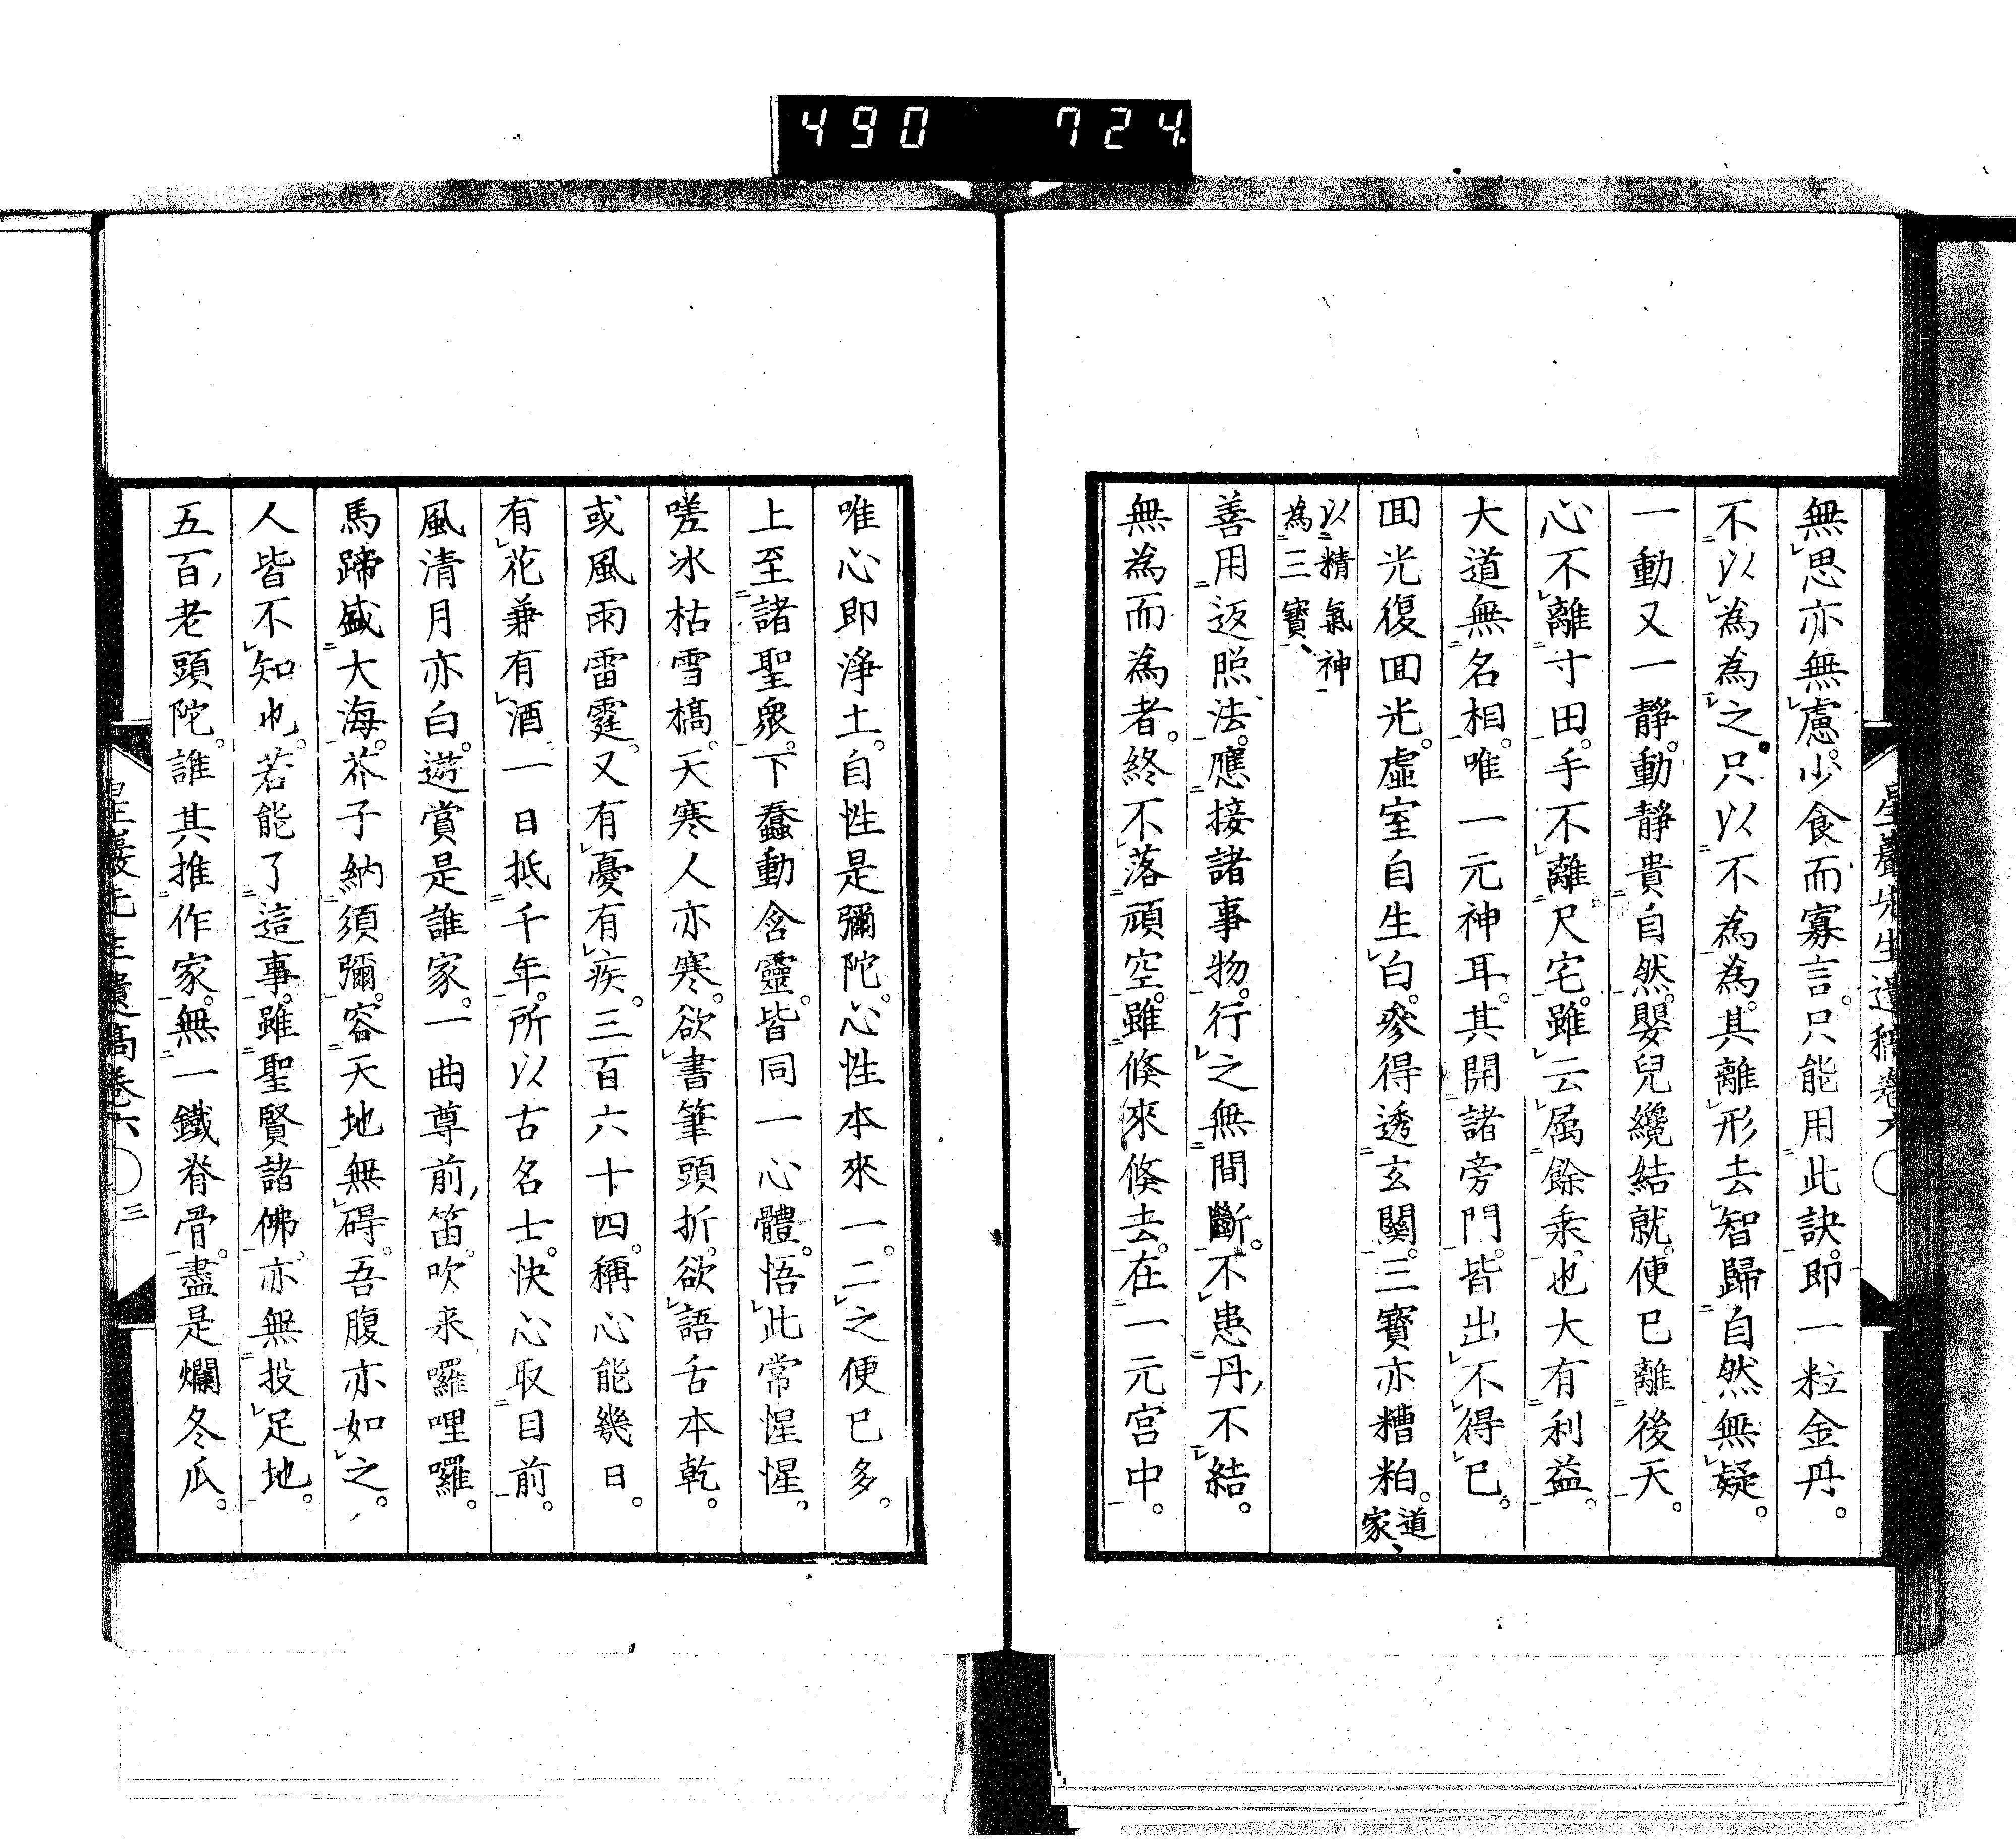 490 724
星巖先生遺稿卷六
無思亦無慮。少食而寡言。只能用此訣。即一粒金丹。
不以為為之。只以不為為。其離形去智歸自然無疑。
一動又一靜。動靜貴自然。嬰兒纔結就。便已離後天。
心不離寸田。手不離尺宅。雖云属餘乘。也大有利益。
大道無名相。唯一元神耳。其開諸旁門。皆出不得已。
囬光復囬光。虛室自生白。參得透玄關。三寳亦糟粕。道家、
以精氣神為三寳、
善用返照法。應接諸事物。行之無間斷。不患丹不結。
無為而為者。終不落頑空。雖倐來倐去。在一元宮中。
唯心即淨土。自性是彌陀。心性本來一。二之便已多。
上至諸聖衆。下蠢動含靈。皆同一心體。悟此常惺惺。
嗟冰枯雪槁。天寒人亦寒。欲書筆頭折。欲語舌本乾。
或風雨雷霆。又有憂有疾。三百六十四。稱心能幾日。
有花兼有酒。一日抵千年。所以古名士。快心取目前。
風清月亦白。遊賞是誰家。一曲尊前笛。吹来囉哩囉。
馬蹄盛大海。芥子納須彌。容天地無碍。吾腹亦如之。
人皆不知也。若能了這事。雖聖賢諸佛。亦無投足地。
五百老頭陀。誰其推作家。無一鐵脊骨。盡是爛冬瓜。
星巖先生遺稿卷六 〇 三